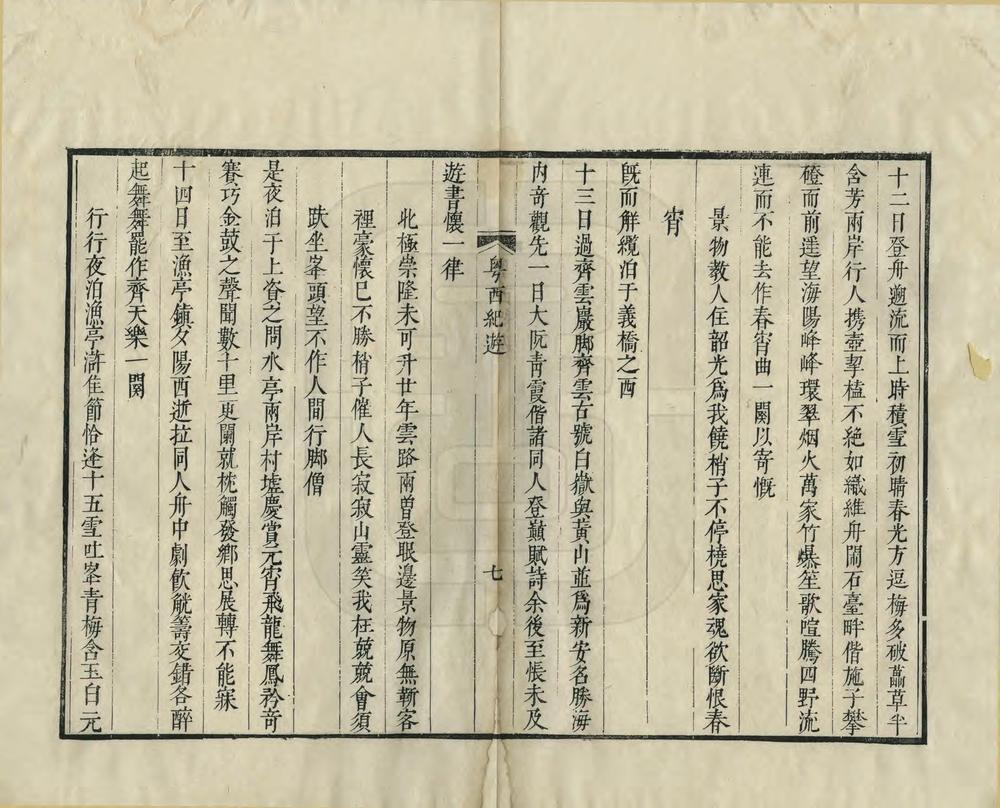 十二日登舟遡流而上時積雪初晴春光方逗梅多破蕾草半
含芳兩岸行人携壺挈榼不絶如織維舟閘石臺畔偕施子攀
磴而前遥望海陽峰峰環翠烟火萬家竹爆笙歌喧騰四野流
連而不能去作春宵曲一闋以寄慨
景物教人住韶光爲我饒梢子不停橈思家魂欲斷恨春
宵
旣而解纜泊于義橋之西
十三日過齊雲巖脚齊雲古號白嶽與黄山並爲新安名勝海
内奇觀先一日大阮靑霞偕諸同人登巔賦詩余後至悵未及
粤西紀遊
七
遊書懷一律
北極崇隆未可升廿年雲路兩曽登眼邊景物原無蘄客
裡豪懷已不勝梢子催人長寂寂山靈笑我枉兢兢會須
趺坐峯頭望不作人間行脚僧
是夜泊于上資之問水亭兩岸村墟慶賞元宵飛龍舞鳳矜奇
賽巧金鼓之聲聞數十里更闌就枕觸發鄕思展轉不能寐
十四日至漁亭鎮夕陽西逝拉同人舟中劇飲觥籌交錯各醉
起舞舞罷作齊天樂一闋
行行夜泊漁亭滸佳節恰逢十五雪吐峯青梅含玉白元